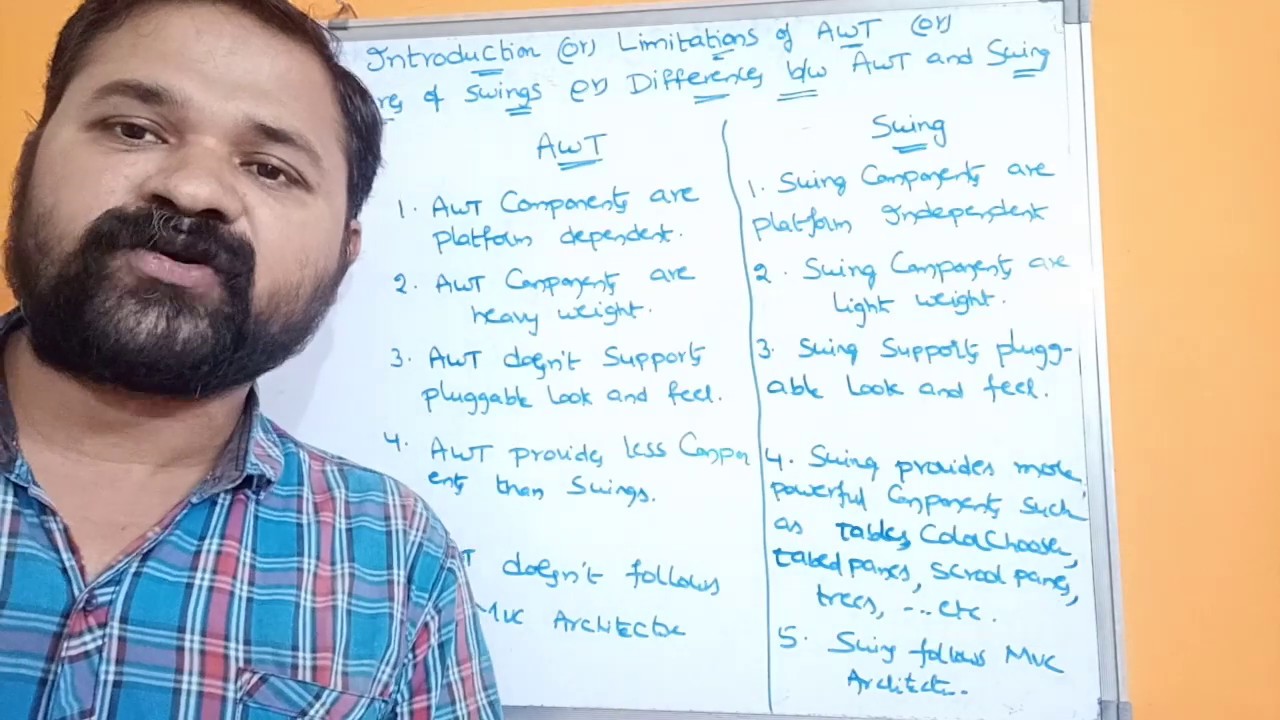 Introduction (or) Limitations of AWT (or)
res of Swings (or) Differences b/w AWT and Swing
AWT
1. AWT Components are
platform dependent.
2. AWT Components are
heavy weight.
3. AWT doesn't Supports
pluggable Look and feel.
4. AWT provides less Compon
ents than Swings.
T doesn't follows
MVC Architectur
Swing
1. Swing Components are
platform Independent
2. Swing Components are
Light weight.
3. Swing Supports plugg-
able Look and feel.
4. Swing provides more
powerful Components such
as tables, ColorChooser,
tabed panes, scrool panes,
trees, ... etc.
5. Swing follows MVC
Architectu.